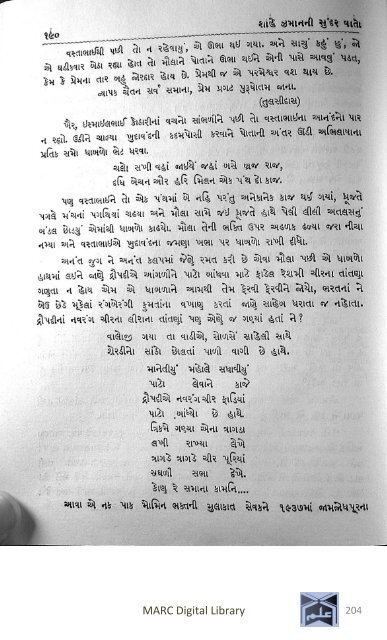 ૧૯૦ શાહે ઝમાનની સુંદર વાતો
વસ્તાભાઈથી પછી તો ન રહેવાયું, એ ઊભા થઈ ગયા. અને સાચું કહું છું, જો
એ ઘડીકવાર બેઠા રહ્યા હોત તો મૌલાને પોતાને ઊભા થઈને એની પાસે આવવું પડત,
કેમ કે પ્રેમના તાર બહુ જોરદાર હોય છે. પ્રેમથી જ એ પરમેશ્વર વશ થાય છે.
વ્યાપક ચૈતન સર્વ સમાના, પ્રેમ પ્રગટ પુરૂષોતમ જાના.
(તુલસીદાસ)
ખૈર, ઇસ્માઇલભાઈ કોઠારીનાં વચનો સાંભળીને પછી તો વસ્તાભાઈના આનંદનો પાર
ન રહ્યો. ઉઠીને ચાલ્યા ખુદાવંદની કદમબોસી કરવાને પોતાની અંતર ઊંડી અભિલાષાના
પ્રતિક સમો ધાબળો ભેટ ધરવા.
ચલો સખી વહાં જાઈએ જહાં બસે વ્રજ રાજ,
દધિ બેચન ઔર હરિ મિલન એક પંથ દો કાજ.
પણ વસ્તાભાઈને તો એક પંથમાં બે નહિ પરંતુ અનેકાનેક કાજ થઈ ગયાં, ધ્રૂજતે
પગલે મંચનાં પગથિયાં ચઢયા અને મૌલા સામે જઈ ધ્રૂજતે હાથે પેલી લીલી અતલસનું
બંડલ છોડયું એમાંથી ધાબળો કાઢયો. મૌલા તેની ભક્તિ ઉપર અઢળક ઢળ્યા જરા નીચા
નમ્યા અને વસ્તાભાઈએ ખુદાવંદના જમણા ખભા પર ધાબળો રાખી દીધો.
અનંત જુગ ને અનંત કલપમાં જેણે રમત કરી છે એવા મૌલા પછી એ ધાબળો
હાથમાં લઈને જાણે દ્રૌપદીએ આંગળીને પાટો બાંધવા માટે ફાડેલ રેશમી ચીરના તાંતણા
ગણતા ન હોય એમ એ ધાબળાને આમથી તેમ ફેરવી ફેરવીને જોયો, ભરતનાં ને
બેઉ છેડે મૂકેલાં રંગબેરંગી ફુમતાંના વખાણ કરતાં જાણે સાહેબ ધરાતા જ નહોતા.
દ્રૌપદીનાં નવરંગ ચીરના લીરાના તાંતણાં પણ એણે જ ગણ્યાં હતાં ને ?
વાલોજી ગયા તા વાડીએ, સોળસેં સાહેલી સાથે
શેરડીનો સાંઠો છોલતાં પાળો વાગી છે હાથે.
માનેતીયું મહોલે સધાવીયું
પાટો લેવાને કાજે
દ્રૌપદીએ નવરંગ ચીર ફાડિયાં
પાટો બાંધ્યો છે હાથે.
ત્રિકમે ગણ્યા એના ત્રાગડા
લખી રાખ્યા લેખે
ત્રાગડે ત્રાગડે ચીર પૂરિયાં
સઘળી સભા દેખે.
કોણ રે સમાના કામનિ....
આવા એ નક પાક મોમિન ભક્તની મુલાકાત સેવકને ૧૯૩૭માં જામજોધપુરના
MARC Digital Library 204